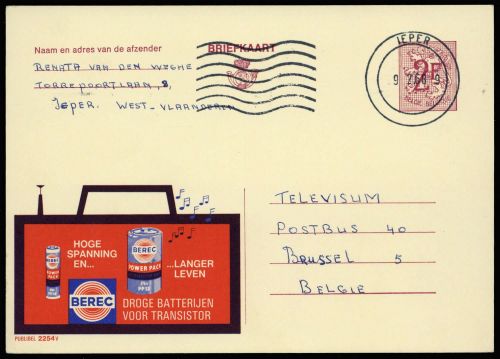 Naam en adres van de afzender
RENATA VAN DEN WEGHE
TORREPOORTLAAN, 8,
IEPER. WEST-VLAANDEREN
BRIEFKAART
IEPER
2F
TELEVISUM
POSTBUS 40
BRUSSEL 5
BELGIE
HOGE
SPANNING
EN...
BEREC
POWER PACK
...LANGER
LEVEN
BEREC
POWER PACK
PP10
BEREC
DROGE BATTERIJEN
VOOR TRANSISTOR
PUBLIBEL 2254V